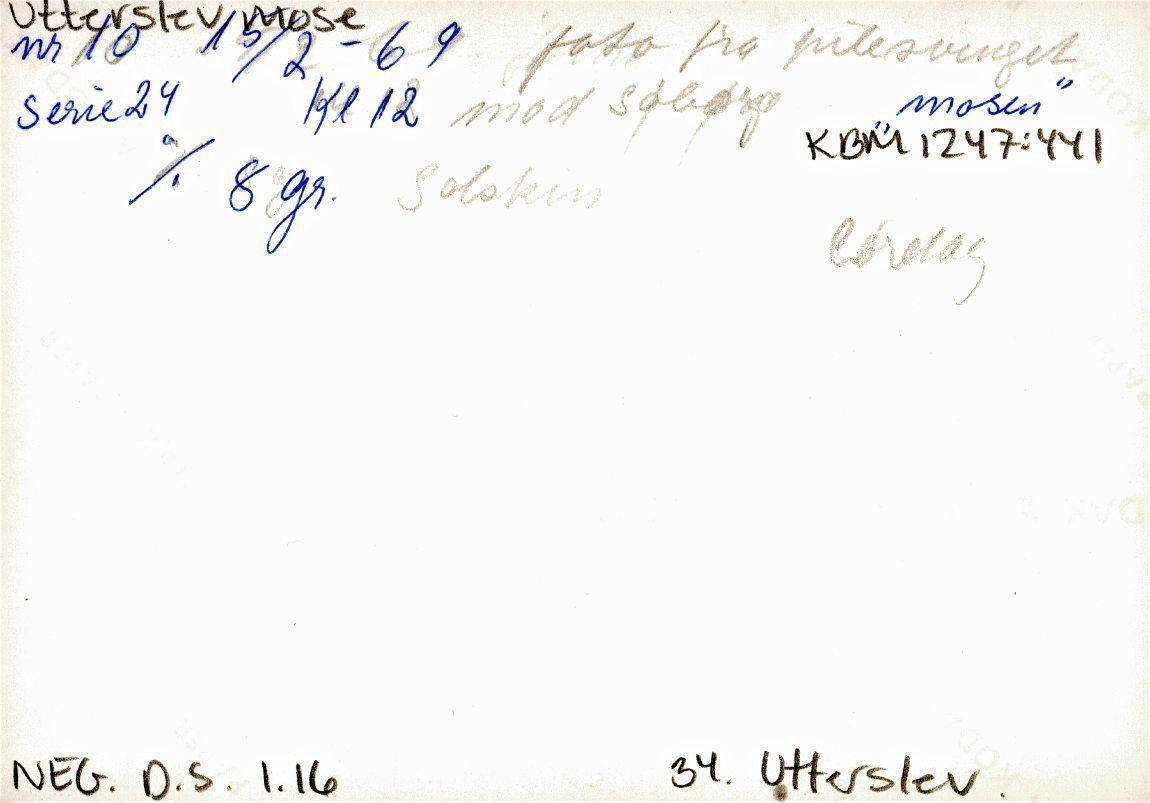 Utterslev Mose
nr 10 15/2-69 foto fra pilesvinget
Serie 24 Kl 12 mod Søborg "mosen"
KBM 1247:441
% 8 gr. Solskin
Lørdag
NEG. D.S. 1.16 34. Utterslev.